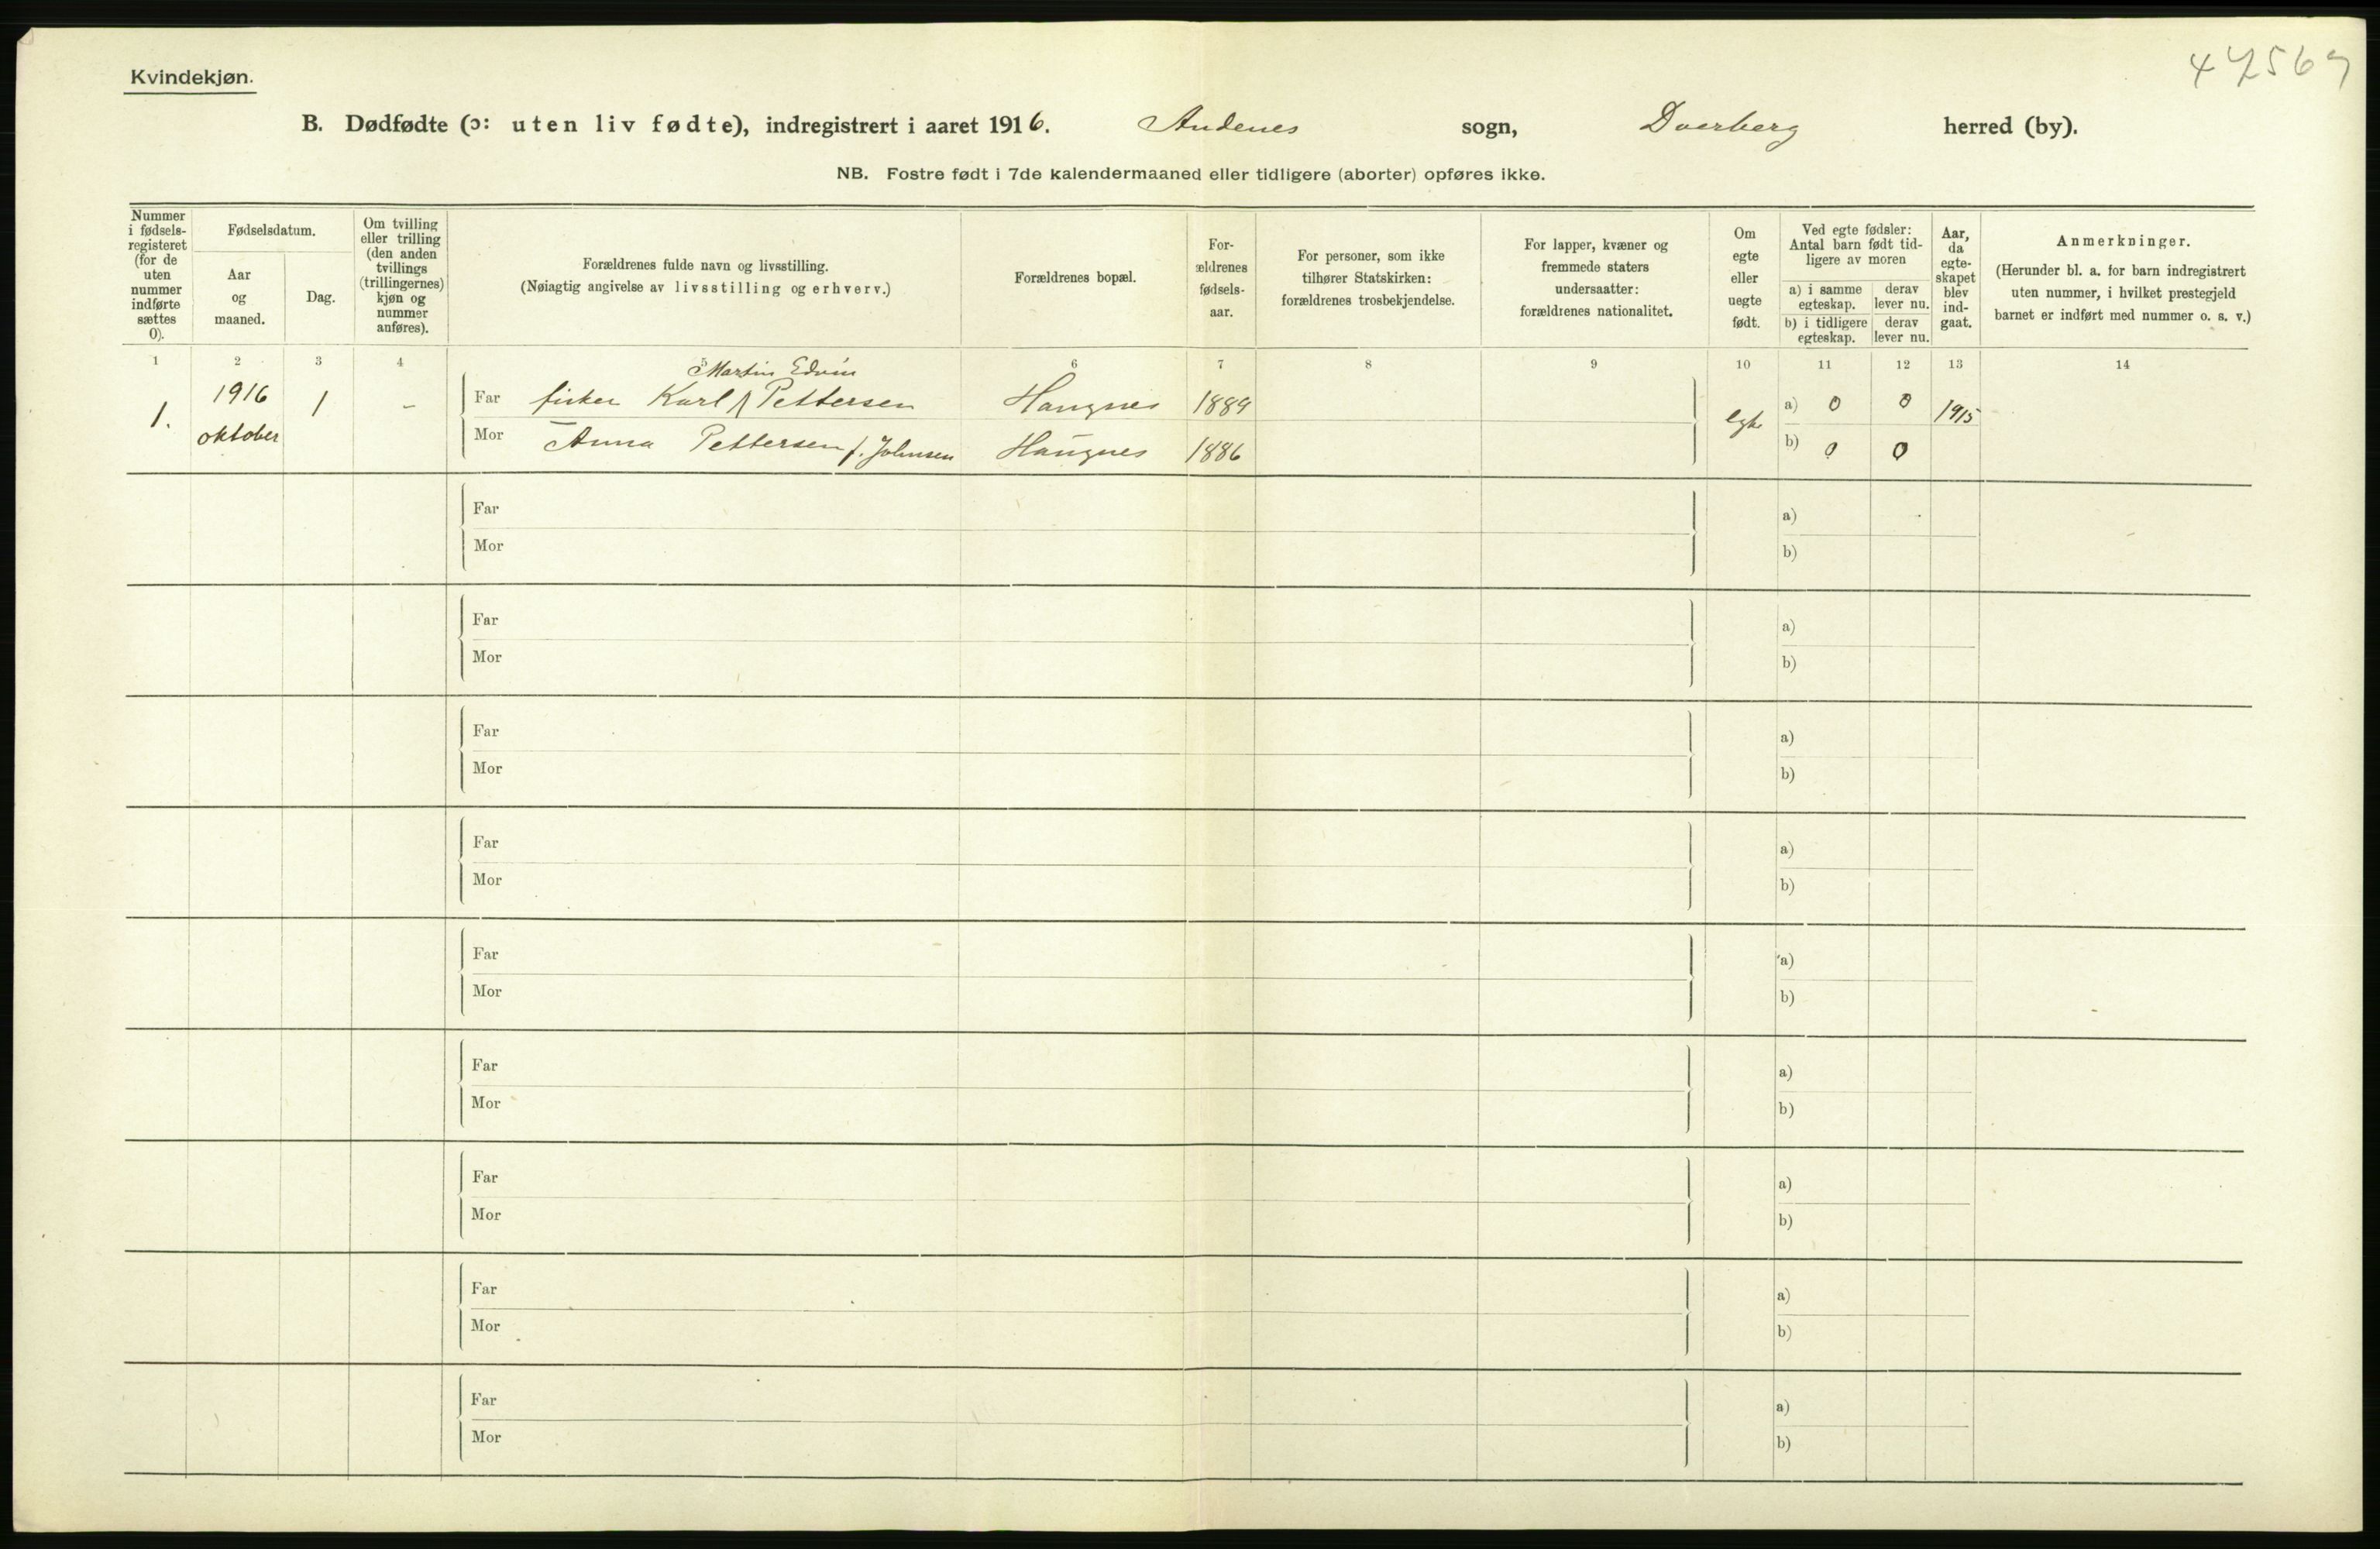 Kvindekjøn.
B. Dødfødte (ɔ: uten liv fødte), indregistrert i aaret 1916. Andenes sogn, Dverberg herred (by).
NB. Fostre født i 7de kalendermaaned eller tidligere (aborter) opføres ikke.
Nummer
i fødsels-
registeret
(for de
uten
nummer
indførte
sættes
0).
Fødselsdatum.
Aar
og
maaned.
Dag.
Om tvilling
eller trilling
(den anden
tvillings
(trillingernes)
kjøn og
nummer
anføres).
Forældrenes fulde navn og livsstilling.
(Nøiagtig angivelse av livsstilling og erhverv.)
Forældrenes bopæl.
For-
ældrenes
fødsels-
aar.
For personer, som ikke
tilhører Statskirken:
forældrenes trosbekjendelse.
For lapper, kvæner og
fremmede staters
undersaatter:
forældrenes nationalitet.
Om
egte
eller
uegte
født.
Ved egte fødsler:
Antal barn født tid-
ligere av moren
a) i samme
egteskap.
derav
lever nu.
b) i tidligere
egteskap.
derav
lever nu.
Aar,
da
egte-
skapet
blev
ind-
gaat.
Anmerkninger.
(Herunder bl. a. for barn indregistrert
uten nummer, i hvilket prestegjeld
barnet er indført med nummer o. s. v.)
1 2 3 4 5 6 7 8 9 10 11 12 13 14
Martin Edvin
1. 1916 1 - Far fisker Karl Pettersen Haugnes 1889 egte a) 0 0 1915
oktober Mor Anna Pettersen f. Johnsen Haugnes 1886 b) 0 0
Far a)
Mor b)
Far a)
Mor b)
Far a)
Mor b)
Far a)
Mor b)
Far a)
Mor b)
Far a)
Mor b)
Far a)
Mor b)
Far a)
Mor b)
Far a)
Mor b)